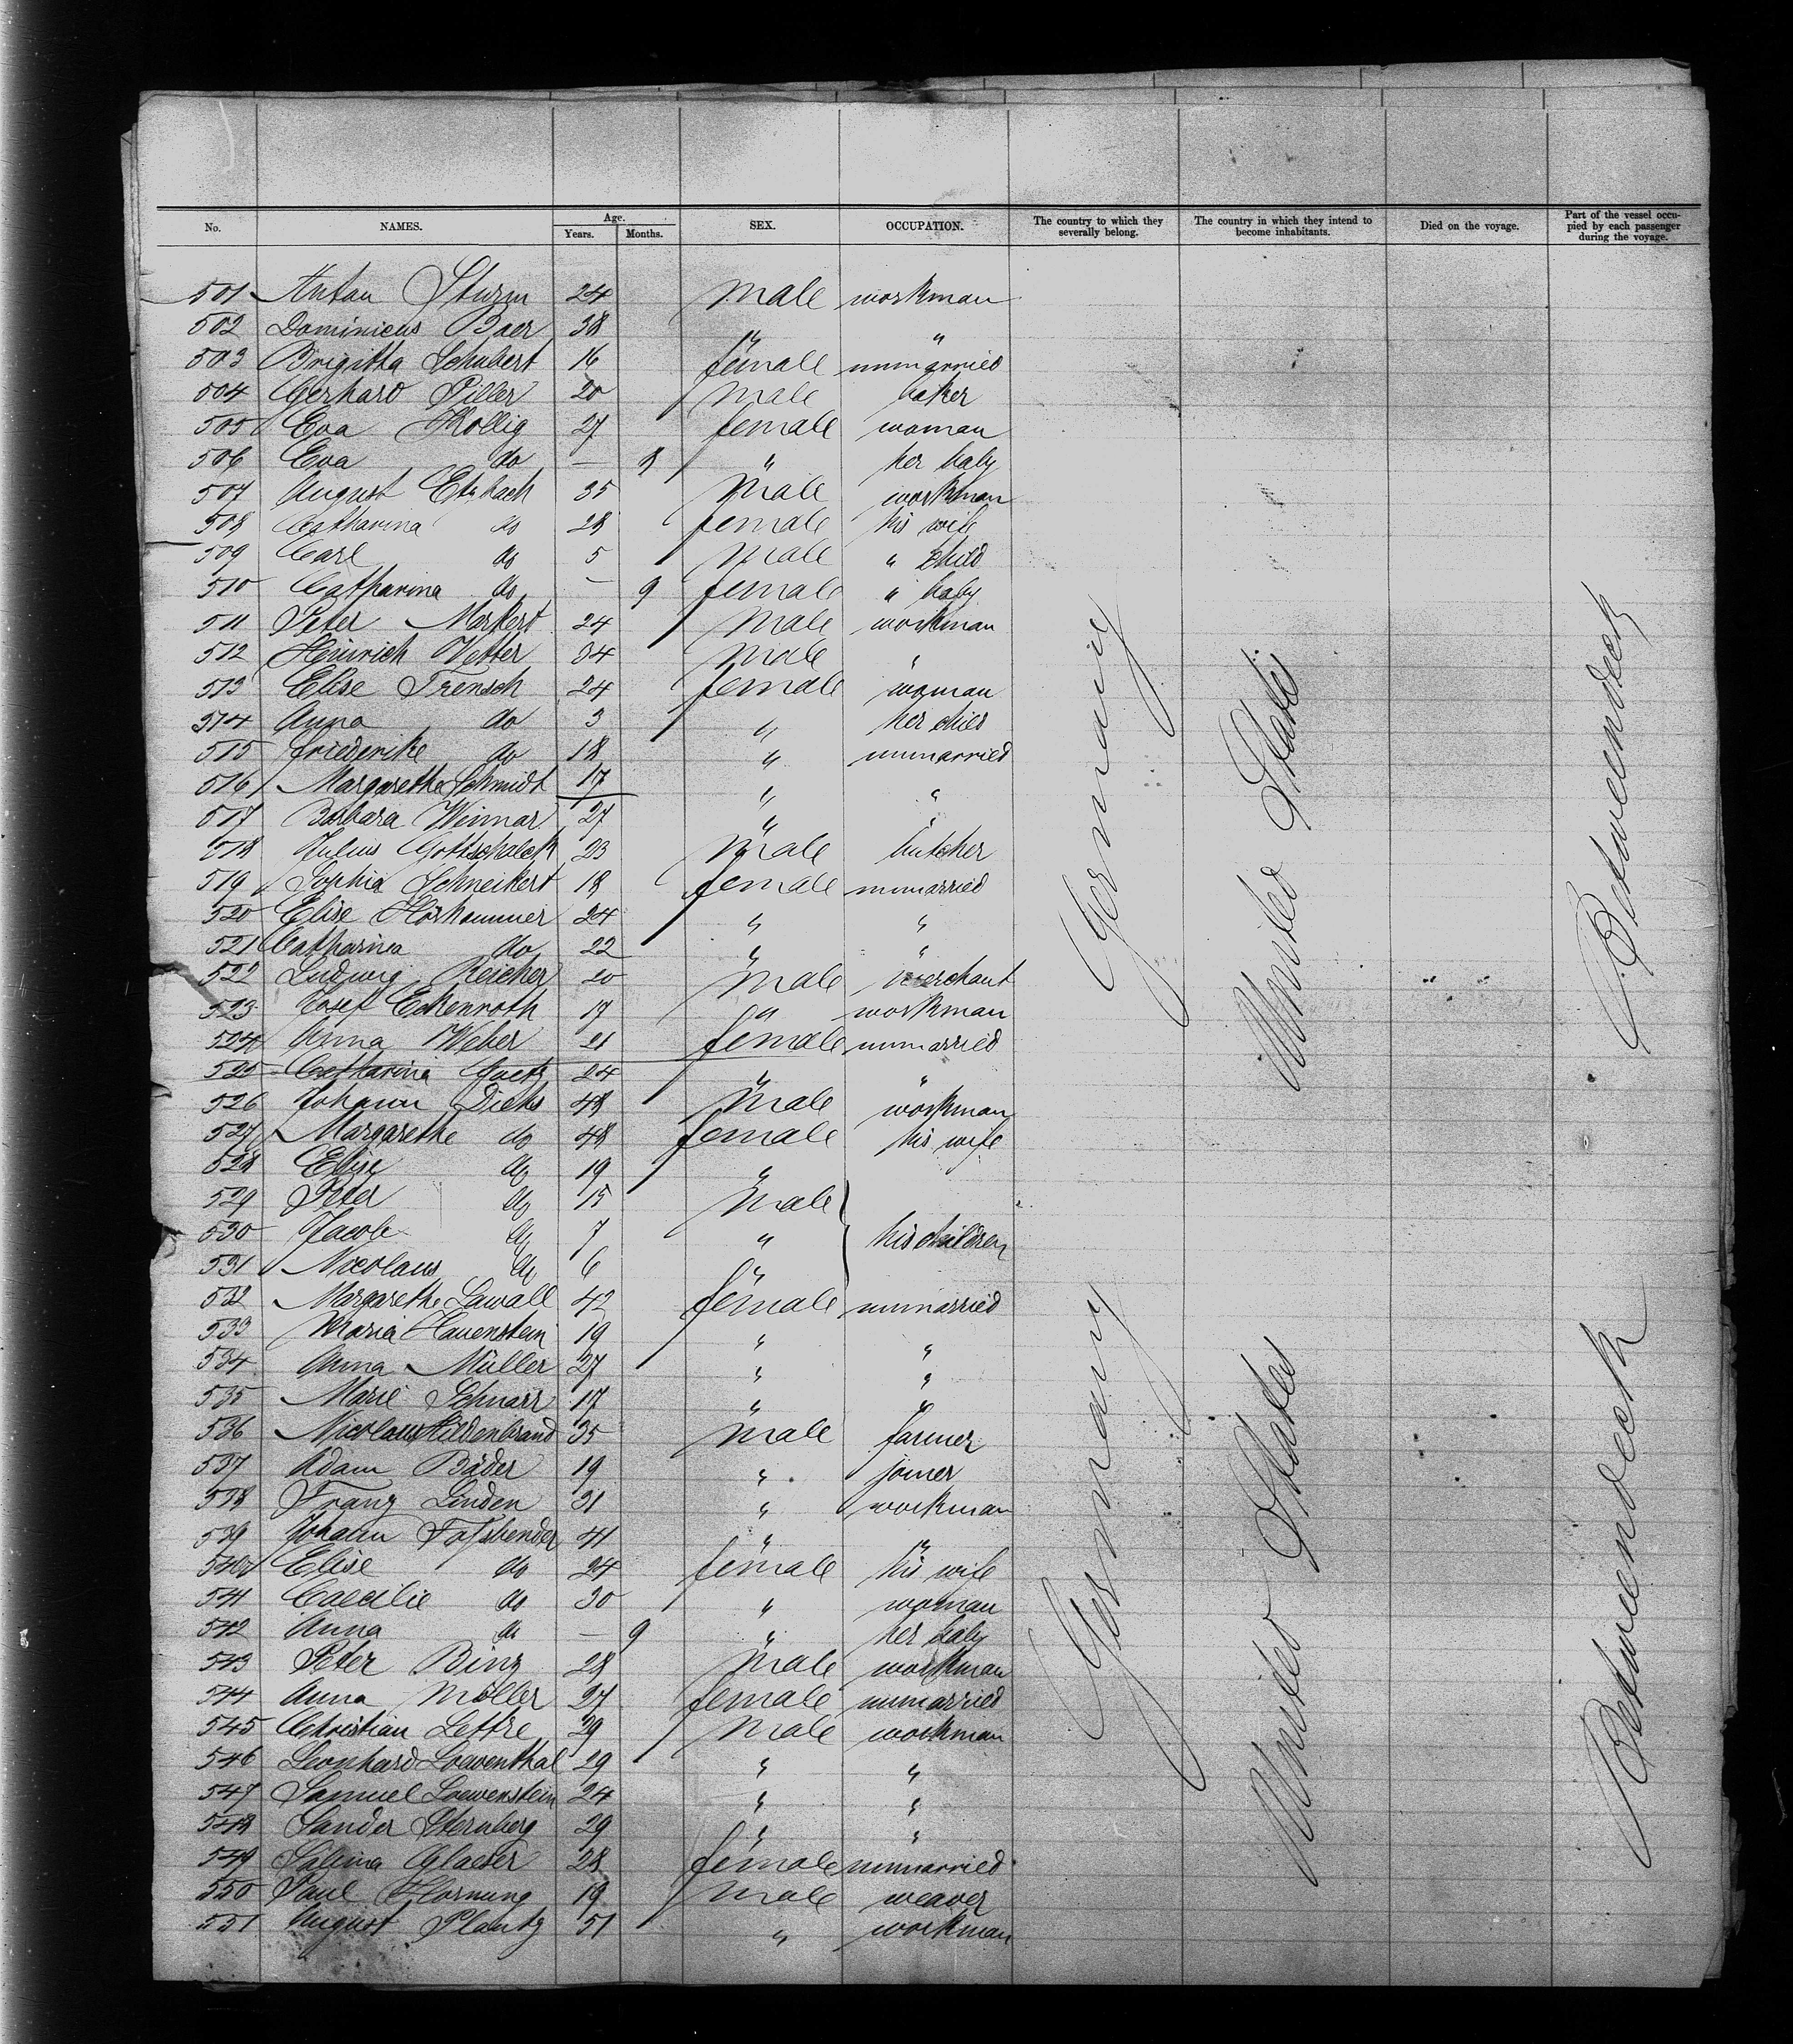 No. NAMES. Age. Years. Months. SEX. OCCUPATION. The country to which they severally belong. The country in which they intend to become inhabitants. Died on the voyage. Part of the vessel occupied by each passenger during the voyage.
501 Anton Sturm 24 male workman
502 Dominicus Baer 38 " "
503 Brigitta Schubert 16 female unmarried
504 Gerhard Piller 20 male baker
505 Eva Kollig 27 female woman
506 Eva do — 8 " her baby
507 August Etzbach 35 male workman
508 Catharina do 28 female his wife
509 Carl do 5 male " child
510 Catharina do — 9 female " baby
511 Peter Markert 24 male workman
512 Heinrich Vetter 34 male "
513 Elise Trensch 24 female woman
514 Anna do 3 " her child
515 Friederike do 18 " unmarried
516 Margarethe Schmidt 17 " "
517 Barbara Weimar 27 " "
518 Julius Gottschalck 23 male butcher
519 Sophia Schneikert 18 female unmarried
520 Elise Hörhammer 24 " "
521 Catharina do 22 " "
522 Ludwig Reicher 20 male merchant
523 Josef Eckenroth 17 " workman
524 Anna Weber 21 female unmarried
525 Catharina Goetz 24 " "
526 Johann Dichs 48 male workman
527 Margarethe do 48 female his wife
528 Elise do 19 "
529 Peter do 15 male
530 Jacob do 7 " his children
531 Nicolaus do 6 "
532 Margarethe Lawall 42 female unmarried
533 Maria Hauenstein 19 " "
534 Anna Müller 27 " "
535 Marie Schnarr 17 " "
536 Nicolaus Hildenbrand 35 male farmer
537 Adam Bäder 19 " joiner
538 Franz Linden 31 " workman
539 Johann Fassbender 41 " "
540 Elise do 24 female his wife
541 Caecilie do 30 " woman
542 Anna do — 9 " her baby
543 Peter Binz 28 male workman
544 Anna Möller 27 female unmarried
545 Christian Lettre 29 male workman
546 Leonhard Loewenthal 29 " "
547 Samuel Loewenstein 24 " "
548 Sander Sternberg 29 " "
549 Salina Glaeser 28 female unmarried
550 Paul Hornung 19 male weaver
551 August Plantz 51 " workman
Germany
United States
Betweendeck
Germany
United States
Betweendeck